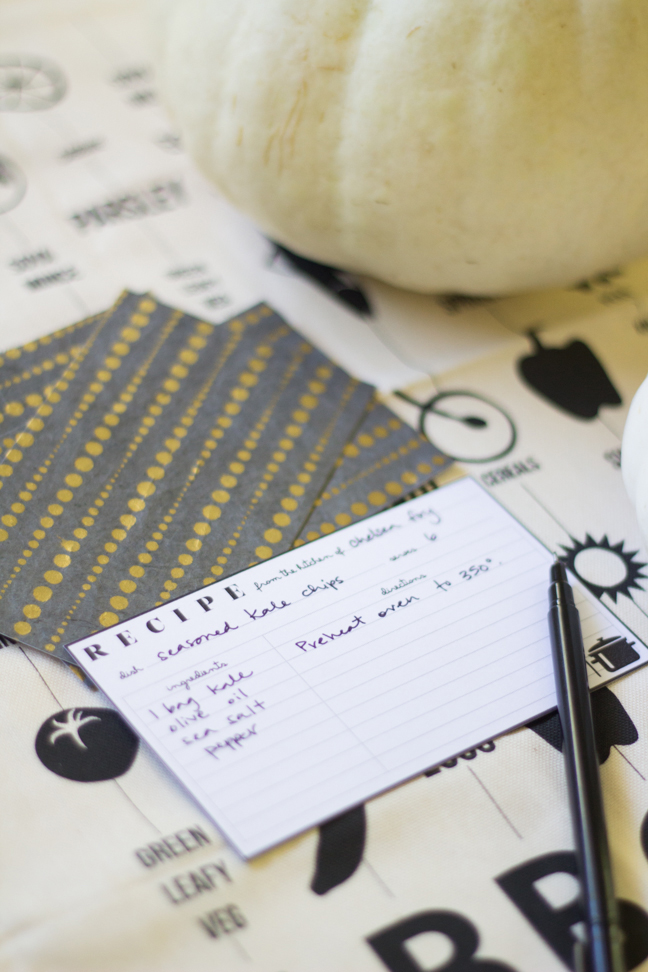 PARSLEY
CEREALS
RECIPE from the kitchen of chelsea foy
dish seasoned kale chips serves 6
ingredients directions
1 bag kale Preheat oven to 350°.
olive oil
sea salt
pepper
GREEN
LEAFY
VEG